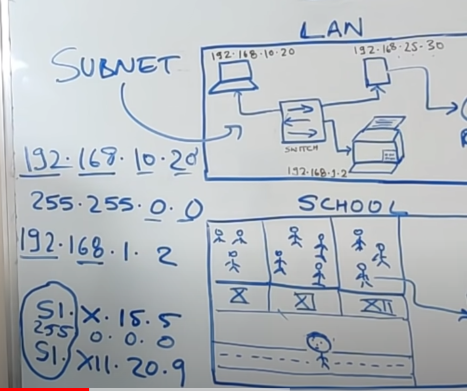 LAN
192.168.10.20
192.168.25.30
SUBNET
SWITCH
192.168.1.2
192.168.10.20
255.255.0.0
192.168.1.2
SCHOOL
X
XI
XII
S1.X.15.5
255 0.0.0
S1.XII.20.9